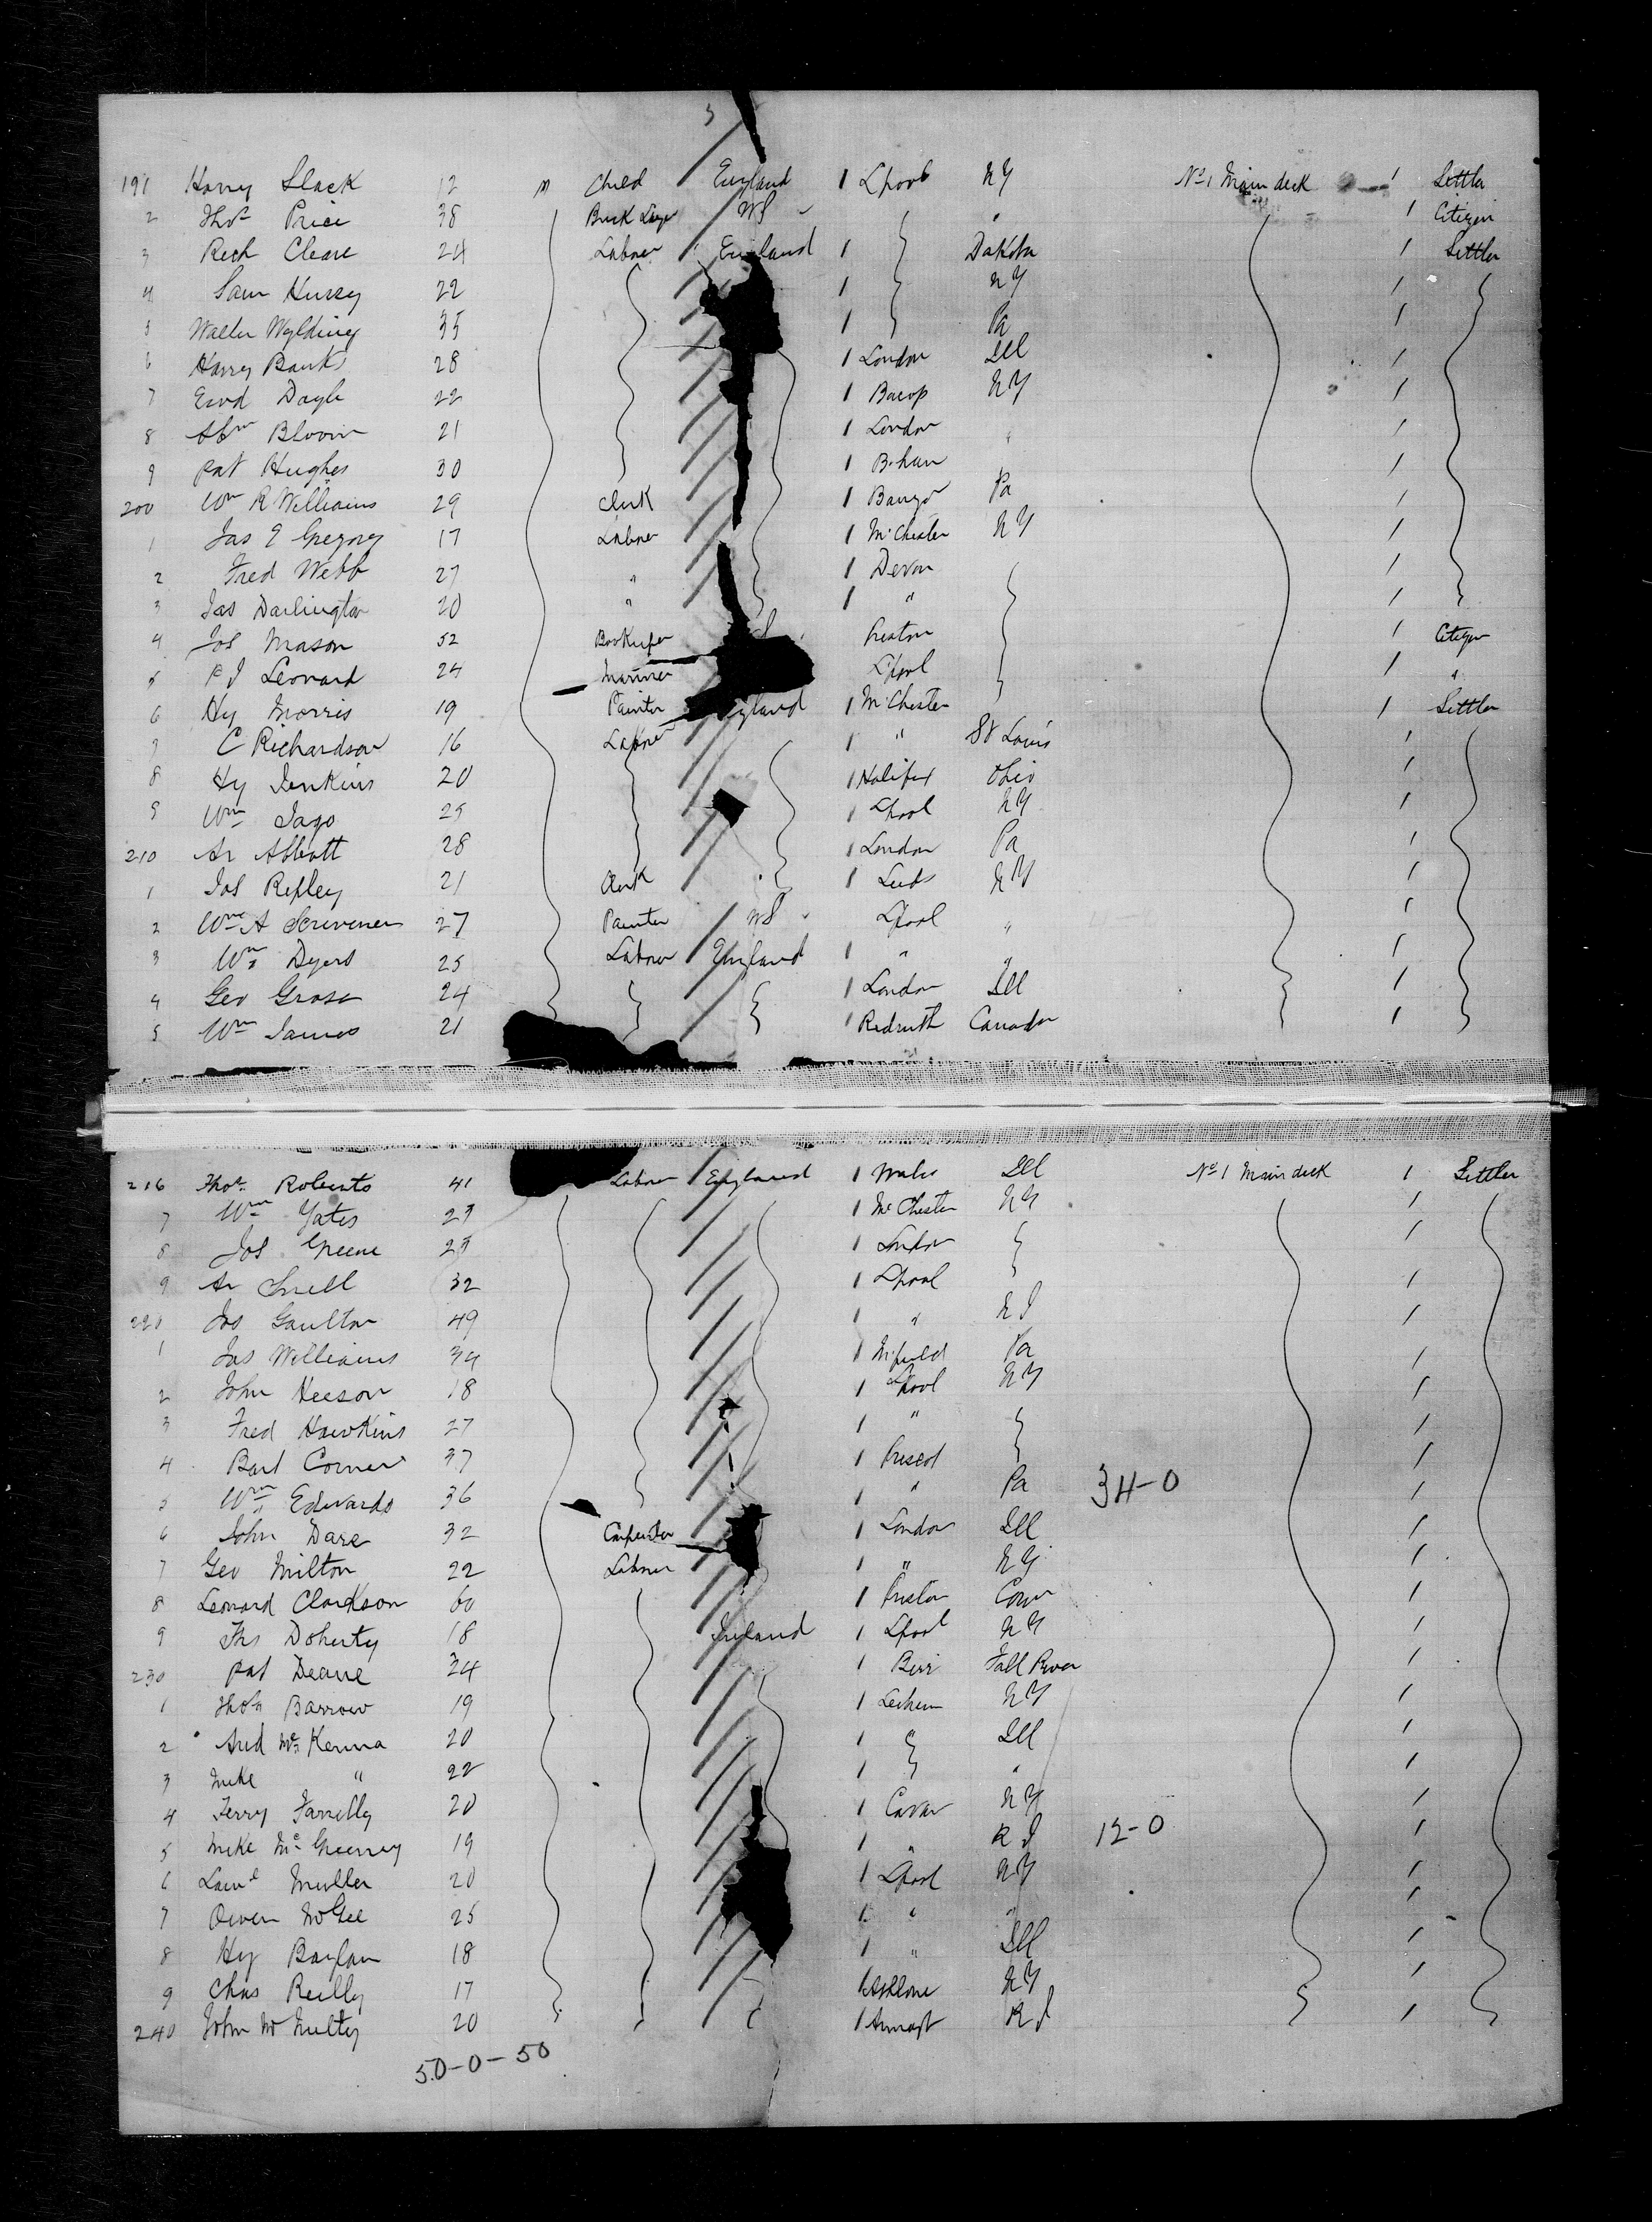 191 Harry Slack 12 m Child England 1 Lpool NY No 1 Main deck 1 Settler
2 Thos Price 38 Brick Layer US " 1 Citizen
3 Rich Cleave 24 Labner England 1 Dakota 1 Settler
4 Sam 22 1 NY 1
5 Walter Wylding 35 1 Pa 1
6 Harry Banks 28 1 London Ill 1
7 Edwd Doyle 22 1 Bacup NY 1
8 Abm Bloom 21 1 London " 1
9 Pat Hughes 30 1 B.ham 1
200 Wm R Williams 29 Clerk 1 Bangor Pa 1
1 Jas E Gregory 17 Labner 1 M'Chester NY 1
2 Fred Webb 27 " 1 Devon 1
3 Jas Darlington 20 " 1 " 1
4 Jos Mason 52 Bookeeper Preston 1 Citizen
5 P J Leonard 24 Mariner Lpool 1 "
6 Hy Morris 19 Painter England 1 M'Chester 1 Settler
7 C Richardson 16 Labner 1 " St Louis 1
8 Hy Jenkins 20 1 Halifax Ohio 1
9 Wm Jago 25 1 Lpool NY 1
210 Ar Abbott 28 1 London Pa 1
1 Jos Ripley 21 Clerk 1 Leeds NY 1
2 Wm A Scrivener 27 Painter US Lpool " 1
3 Wm Dyers 25 Labner England 1 " " 1
4 Geo Grose 24 1 London Ill 1
5 Wm James 21 1 Redruth Canada 1
216 Thos Roberts 41 Labner England 1 Wales Ill No 1 Main deck 1 Settler
7 Wm Yates 23 1 Mc Chester NY 1
8 Jos Greene 25 1 London 1
9 Ar Snell 32 1 Lpool 1
220 Jos Gaulton 49 1 " NJ 1
1 Jas Williams 34 1 Pa 1
2 John Heeson 18 1 Lpool NY 1
3 Fred Hawkins 27 1 " 1
4 Bart Corner 37 1 Prescot 1
5 Wm Edwards 36 1 " Pa 34-0 1
6 John Dare 32 Carpenter 1 London Ill 1
7 Geo Milton 22 Labner 1 " NY 1
8 Leonard Clarkson 60 1 Preston Conn 1
9 Ths Doherty 18 Ireland 1 Lpool NY 1
230 Pat Deane 24 1 Birr Fall River 1
1 Thos Barrow 19 1 NY 1
2 And Mc Kenna 20 1 " Ill 1
3 Mike " 22 1 " 1
4 Terry Farrelly 20 1 Cavan NY 1
5 Mike Mc Greevey 19 1 " R I 12-0 1
6 Saml Muller 20 1 Lpool NY 1
7 Owen McGee 25 1 " " 1
8 Hy Boylan 18 1 " Ill 1
9 Chas Reilly 17 1 Athlone NY 1
240 John Mc Nulty 20 1 Armagh R I 1
50-0-50